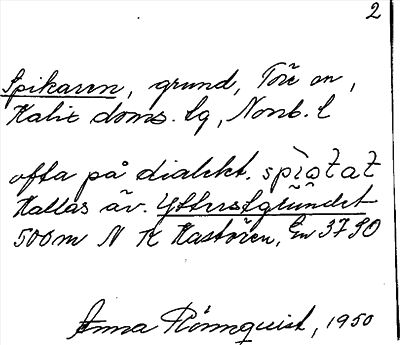 2
Spikaren, grund, Töre sn,
Kalix doms. lg, Nonb. l
ofta på dialekt.
Kallas äv. Ytterstgrundet
500 m N K Kastören, En 3790
Anna Rönnquist, 1950